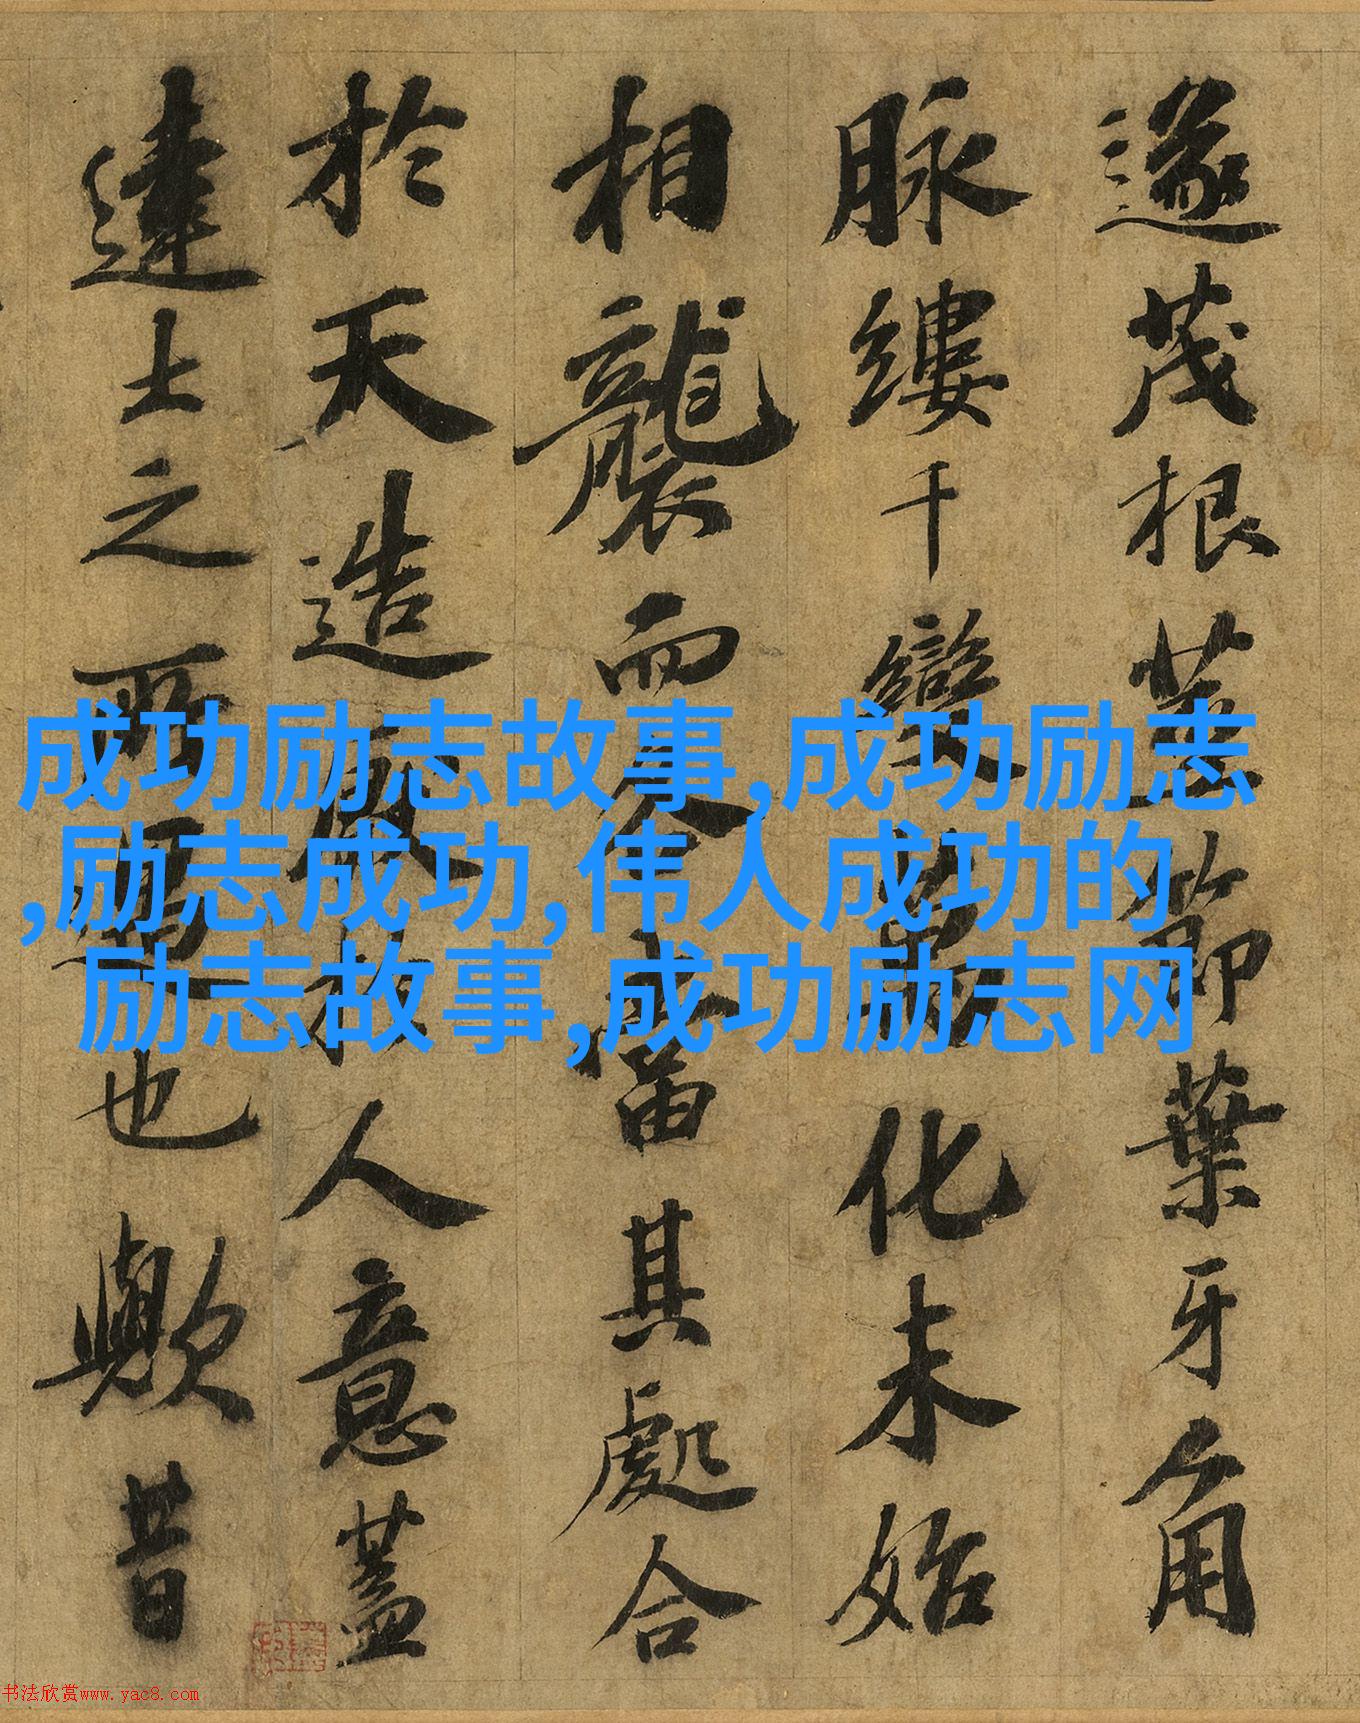 遂茂根莖節葉牙角
脉縷千變萬化未始
相襲而各當其處合
於天造厭於人意蓋
達士之所寓也歟昔
成功励志故事,成功励志
,励志成功,伟人成功的
励志故事,成功励志网
书法欣赏www.yac8.com